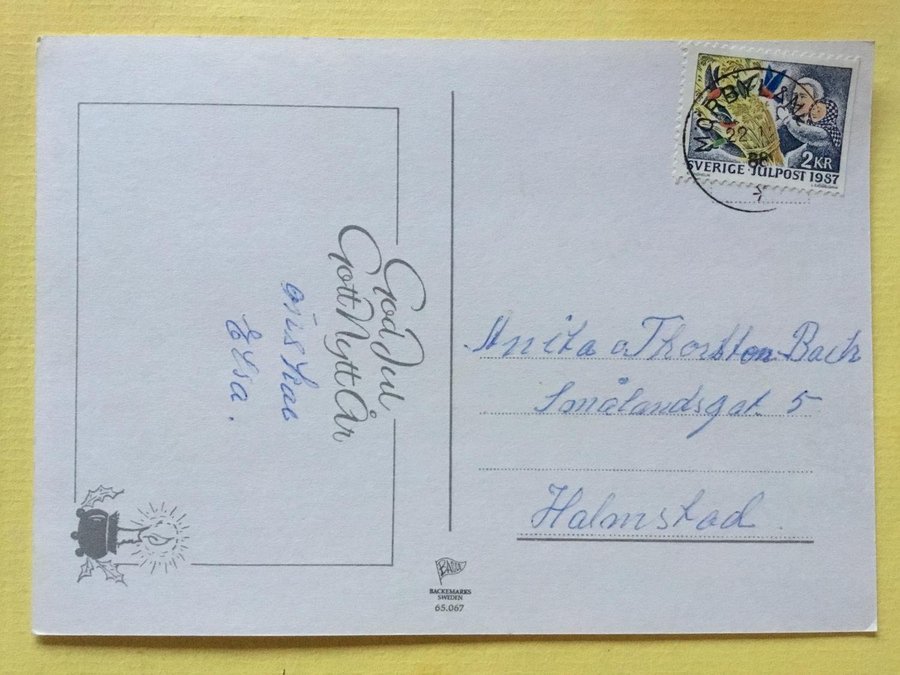 God Jul
Gott Nytt År
önskar
Elsa.
MÖRBYLÅNGA
22
88
2 KR
SVERIGE JULPOST 1987
Anita o Thorsten Bach
Smålandsgat. 5
Halmstad
BACKEMARKS
SWEDEN
65.067